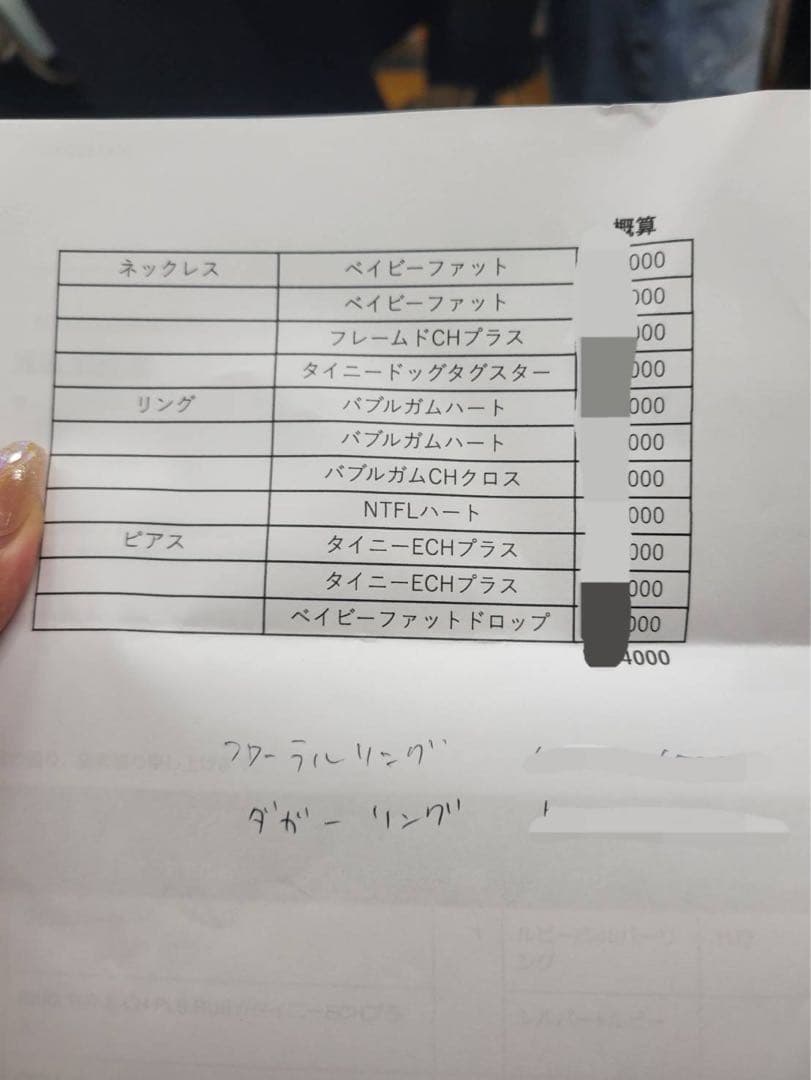 概算
ネックレス ベイビーファット 000
ベイビーファット 000
フレームドCHプラス 000
タイニードッグタグスター 000
リング バブルガムハート 000
バブルガムハート 000
バブルガムCHクロス 000
NTFLハート 000
ピアス タイニーECHプラス 000
タイニーECHプラス 000
ベイビーファットドロップ 000
4000
フローラルリング
ダガーリング